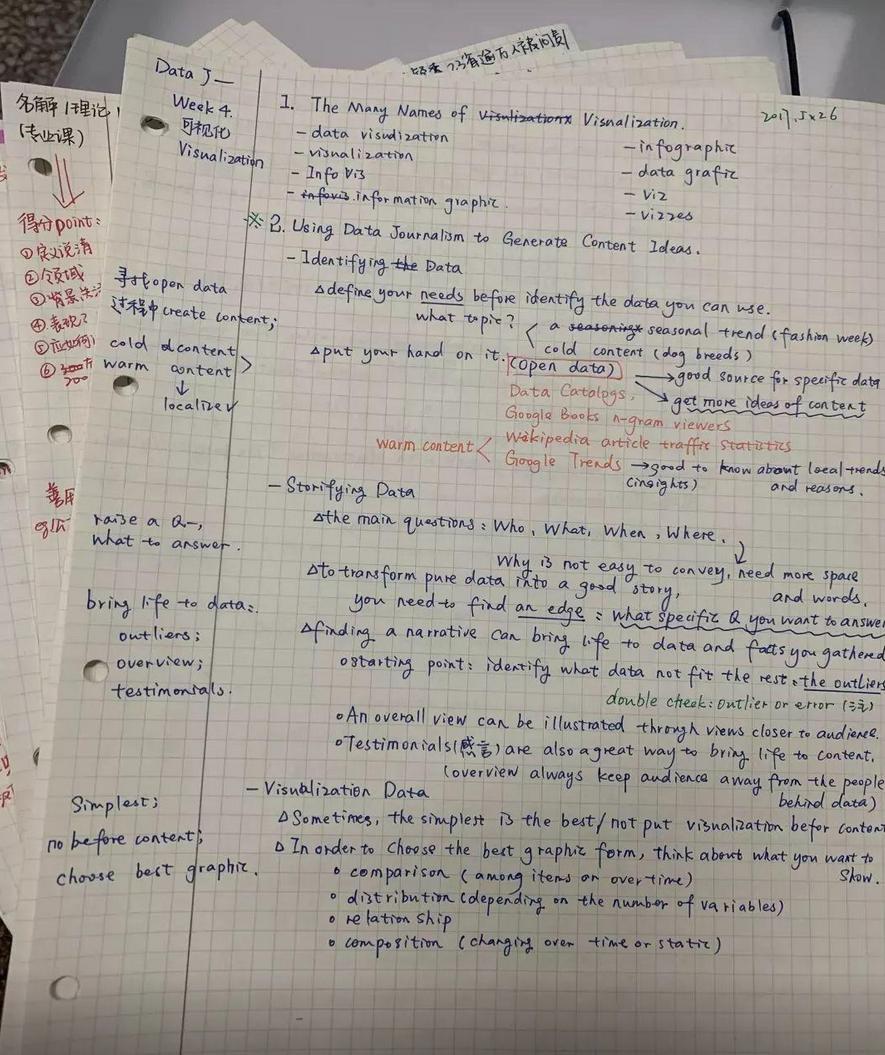 Data J—
Week 4.
可视化
Visualization
2017.
1. The Many Names of Visulization Visualization.
- data visualization
- visualization
- Info Vis
- infovis information graphic.
- infographic
- data grafic
- Viz
- vizzes
※ 2. Using Data Journalism to Generate Content Ideas.
- Identifying the Data
△define your needs before identify the data you can use.
what topic? < a seasoning seasonal trend (fashion week)
cold content (dog breeds)
△put your hand on it. (open data) → good source for specific data
→ get more ideas of content
Data Catalogs,
Google Books n-gram viewers
warm content < Wikipedia article traffic statistics
Google Trends → good to know about local trends
(insights) and reasons.
寻找open data
过程中create content;
cold content
warm content >
↓
localize
- Storifying Data
△the main questions: Who, What, When, Where.
Why is not easy to convey, need more space
and words.
△to transform pure data into a good story,
you need to find an edge: what specific Q you want to answer
△finding a narrative can bring life to data and facts you gathered
○starting point: identify what data not fit the rest: the outliers
double check: outlier or error (注)
○An overall view can be illustrated through views closer to audience.
○Testimonials(感言) are also a great way to bring life to content.
(overview always keep audience away from the people
behind data)
raise a Q—,
what to answer.
bring life to data:
outliers;
overview;
testimonials.
- Visualization Data
△Sometimes, the simplest is the best/not put visualization befor content
△ In order to choose the best graphic form, think about what you want to
show.
○ comparison (among items or over time)
○ distribution (depending on the number of variables)
○ relation ship
○ composition (changing over time or static)
Simplest;
no before content;
choose best graphic.
名解/理论
(专业课)
得分point:
①定义说清
②领域
③背景
④表现
⑤应如何
⑥
200